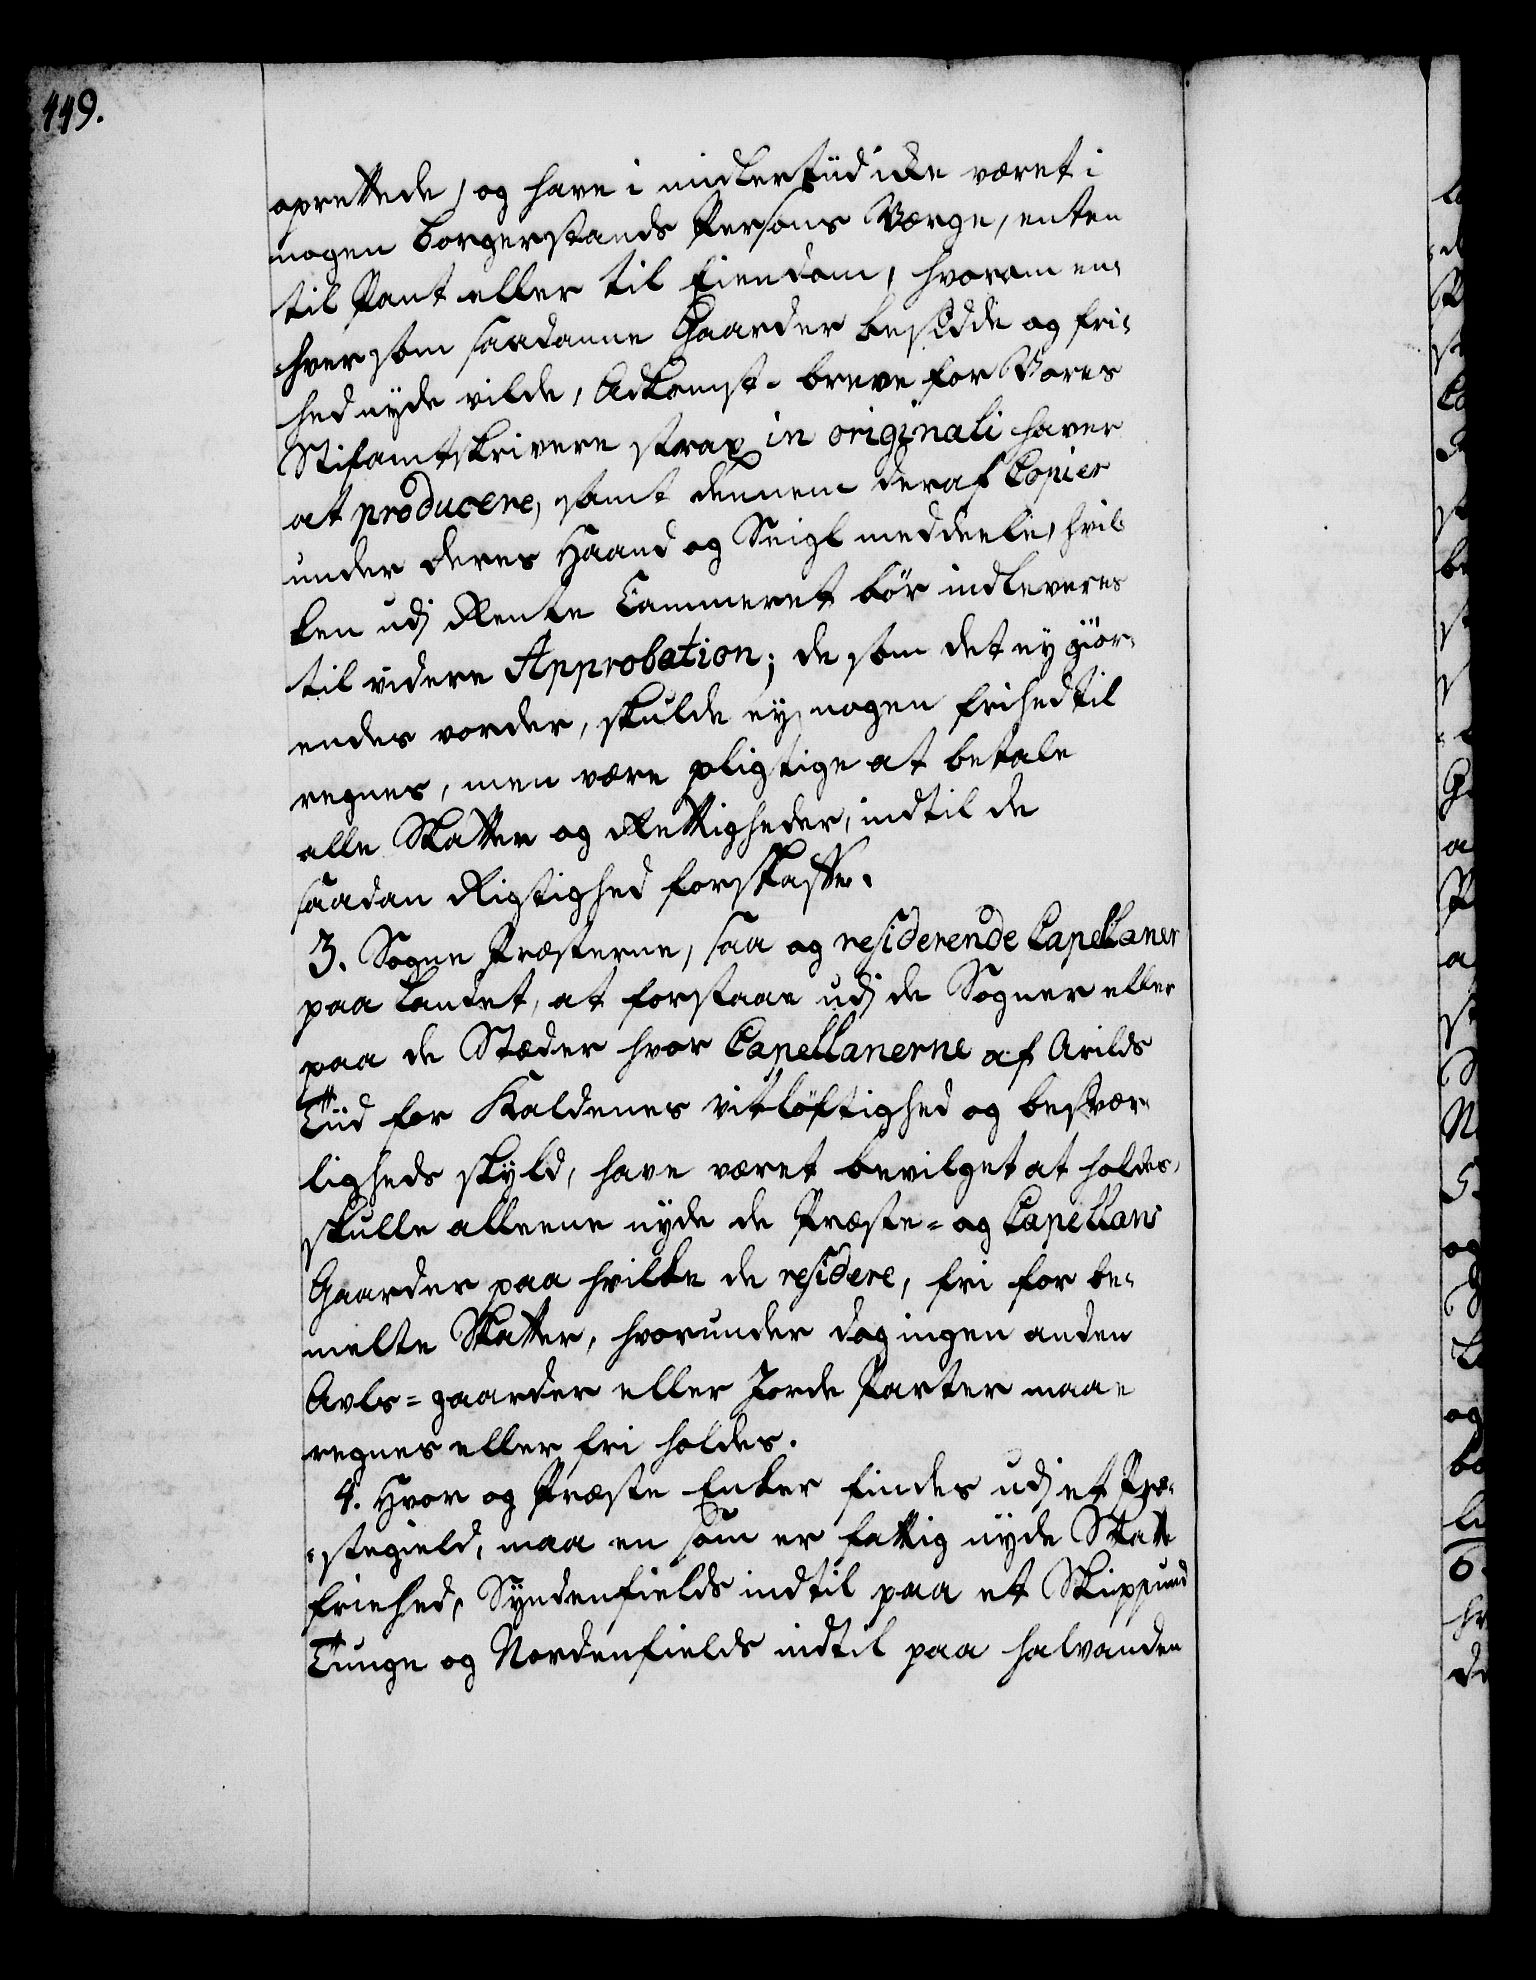 449.
oprettede, og have i midlertiid icke været i
nogen Borgerstands Persons Værge, enten
til Pant eller til Eiendom, hvorom en-
-hver som saadanne Gaarder besidde og fri-
hed nyde vilde, Adkomst-breve for Vores
Stiftamtskrivere strax in originali haver
at producere, samt dennem deraf Copier
under deres Haand og Seigl meddeele, hvil-
ken udj Rente Cammeret bør indleveres
til videre Approbation; de som det ey giør-
endes vorder, skulde ey nogen frihed til
regnes, men være pligtige at betale
alle Skatter og Rettigheder, indtil de
saadan Rigtighed forskaffe.
3. Sogne Præsterne, saa og residerende Capellaner
paa Landet, at forstaae udj de Sogner eller
paa de Stæder hvor Capellanerne af Arilds
Tiid for Kaldenes vitløftighed og besvær-
ligheds skyld, have været bevilget at holdes,
skulle alleene nyde de Præste- og Capellans
Gaarder paa hvilke de residere, fri for be-
melte Skatter, hvorunder dog ingen anden
Avls-gaarder eller Jorde Parter maae
regnes eller fri holdes.
4. Hvor og Præste Enker findes udj et Præ-
-stegield, maa en som er fattig nyde Skatte
friehed, Syndenfields indtil paa et Skippund
Tunge og Nordenfields indtil paa halvanden